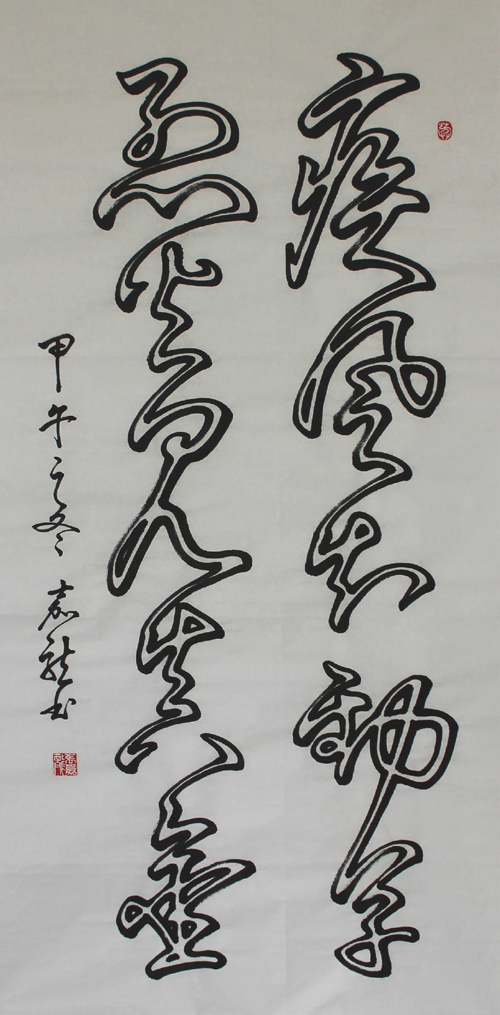 疾风知劲草
烈火见真金
甲午之冬 嘉龙书